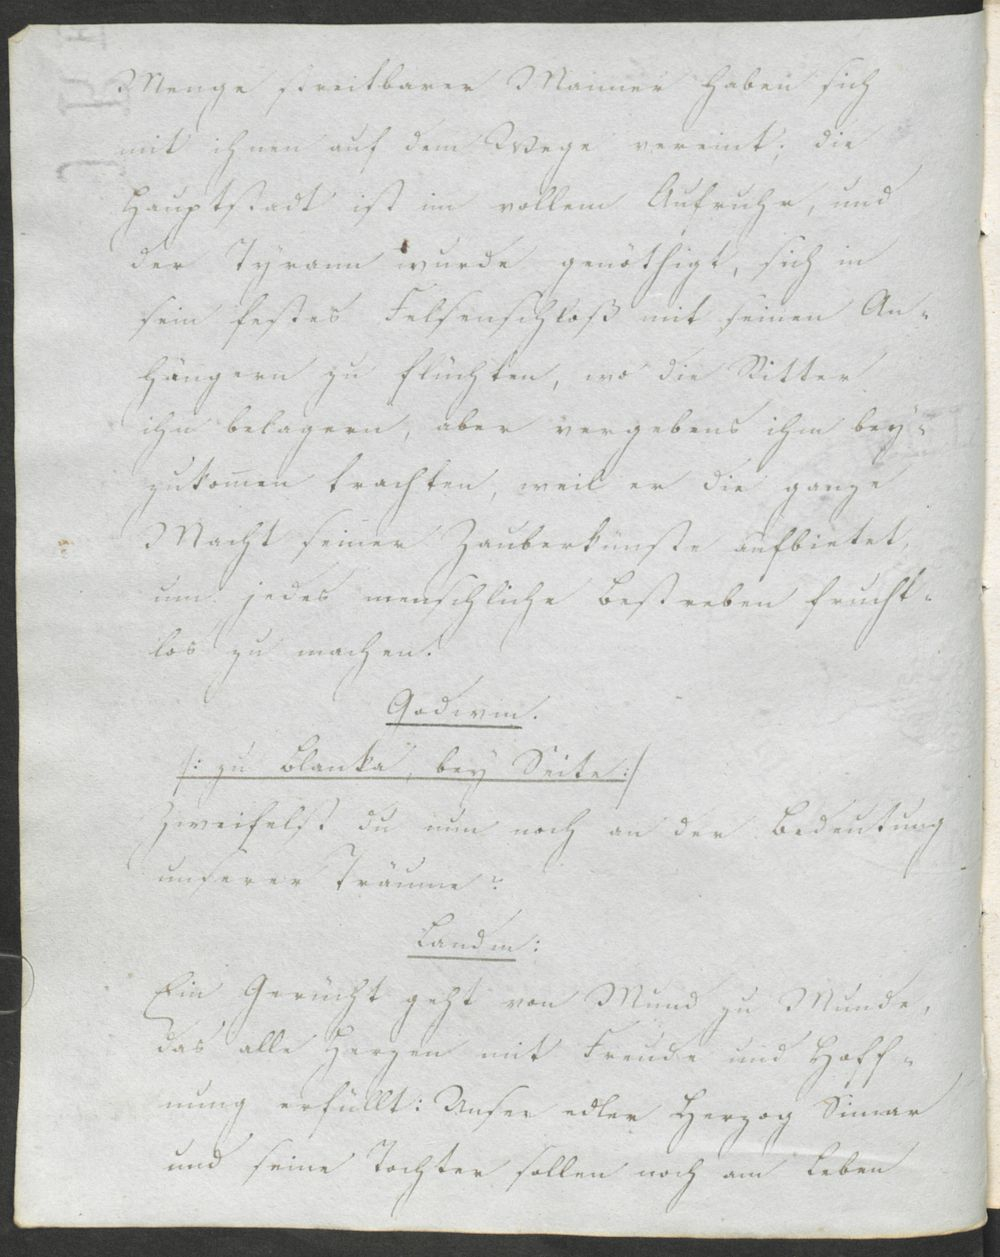 Menge streitbarer Männer haben sich
mit ihnen auf dem Wege vereint; die
Hauptstadt ist im vollem Aufruhr, und
der Tyrann wurde genöthigt, sich in
sein festes Felsenschloß mit seinen An=
hängern zu flüchten, wo die Ritter
ihn belagern, aber vergebens ihm bey=
zukom̄en trachten, weil er die ganze
Macht seiner Zauberkünste aufbietet,
um jedes menschliche Bestreben frucht=
los zu machen.
Godwin.
/: zu Blanka, bey Seite :/
Zweifelst du nun noch an der Bedeutung
unserer Träume?
Landm:
Ein Gerücht geht von Mund zu Munde,
das alle Herzen mit Freude und Hoff=
nung erfüllt: Unser edler Herzog Simar
und seine Tochter sollen noch am Leben